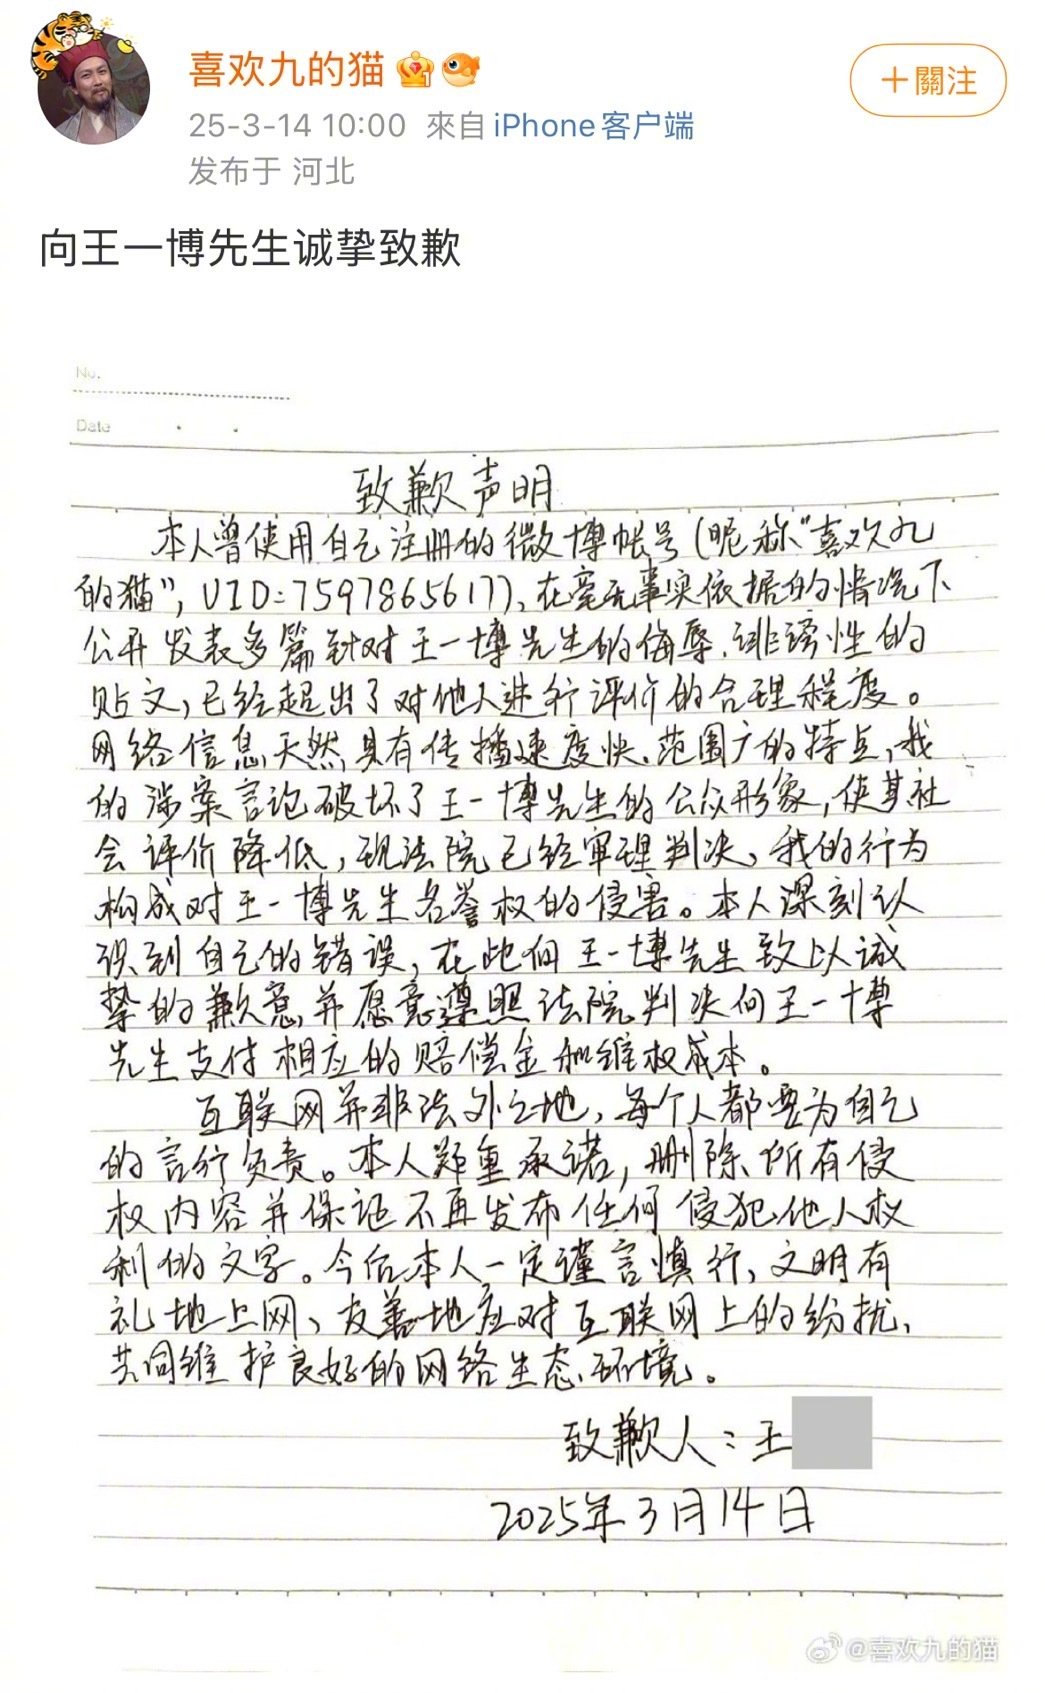 喜欢九的猫
十關注
25-3-14 10:00 來自 iPhone客户端
发布于 河北
向王一博先生诚挚致歉
No.
Date
致歉声明
本人曾使用自己注册的微博帐号(昵称"喜欢九
的猫", UID:7597865617)、在毫无事实依据的情况下
公开发表多篇针对王一博先生的侮辱、诽谤性的
贴文,已经超出了对他人进行评价的合理程度。
网络信息天然具有传播速度快、范围广的特点,我
的涉案言论破坏了王一博先生的公众形象,使其社
会评价降低,现法院已经审理判决,我的行为
构成对王一博先生名誉权的侵害。本人深刻认
识到自己的错误,在此向王一博先生致以诚
挚的歉意,并愿意遵照法院判决向王一博
先生支付相应的赔偿金和维权成本。
互联网并非法外之地,每个人都要为自己
的言行负责。本人郑重承诺,删除所有侵
权内容并保证不再发布任何侵犯他人权
利的文字。今后本人一定谨言慎行,文明有
礼地上网、友善地应对互联网上的纷扰、
共同维护良好的网络生态环境。
致歉人:王
2025年3月14日
@喜欢九的猫